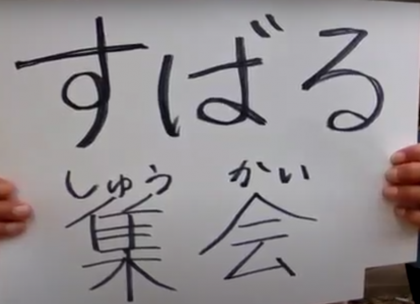 すばる
しゅう かい
集会